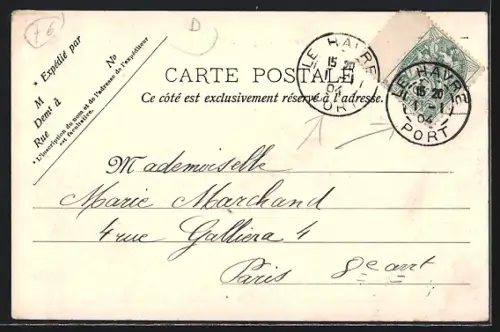 76
D
* Expédié par
No
M
Demt à
Rue
* L'inscription du nom et de l'adresse de l'expéditeur
est facultative.
LE HAVRE
15 20
04
LE HAVRE
15 20
04
PORT
CARTE POSTALE
Ce côté est exclusivement réservé à l'adresse.
Mademoiselle
Marie Marchand
4 rue Galliera 4
Paris 8e arrt